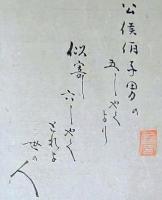 公侯伯子男の
五しやくより
似寄し
六しやく
とれる
世の人